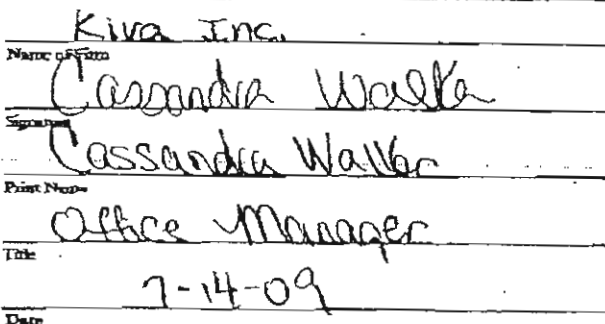 Kiva Inc.
Name of Firm
Cassandra Walker
Signature
Cassandra Walker
Print Name
Office Manager
Title
7-14-09
Date